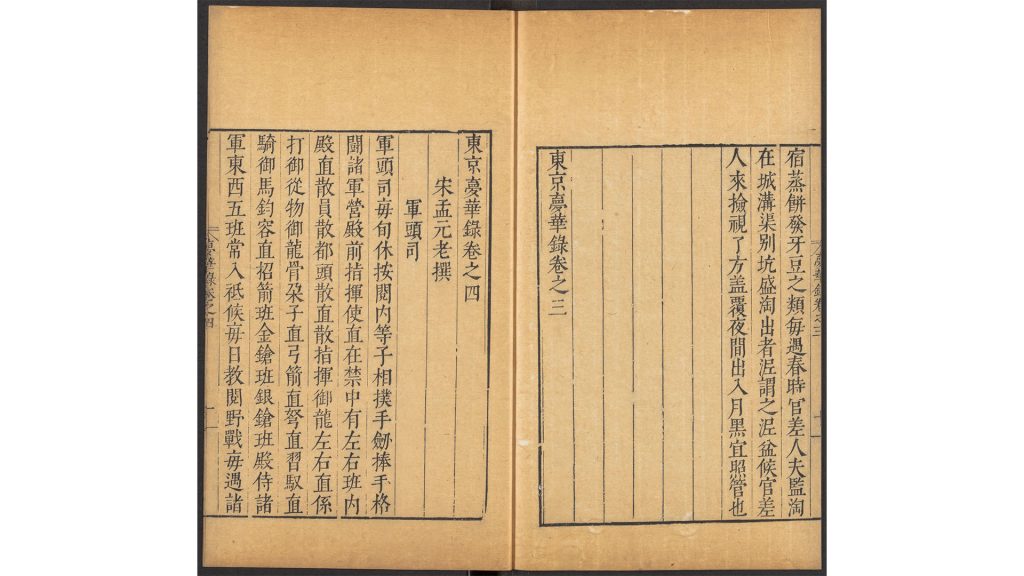 宿蒸餅發牙豆之類每遇春時官差人夫監淘
在城溝渠别坑盛淘出者泥謂之泥盆候官差
人來撿視了方盖覆夜間出入月黑宜照管也
東京夢華錄卷之三
東京夢華錄卷之四
宋孟元老撰
軍頭司
軍頭司每旬休按閱内等子相撲手劒捧手格
鬭諸軍營殿前指揮使直在禁中有左右班内
殿直散員散都頭散直散指揮御龍左右直係
打御從物御龍骨朶子直弓箭直弩直習馭直
騎御馬鈞容直招箭班金鎗班銀鎗班殿侍諸
軍東西五班常入祗候每日教閱野戰每遇諸